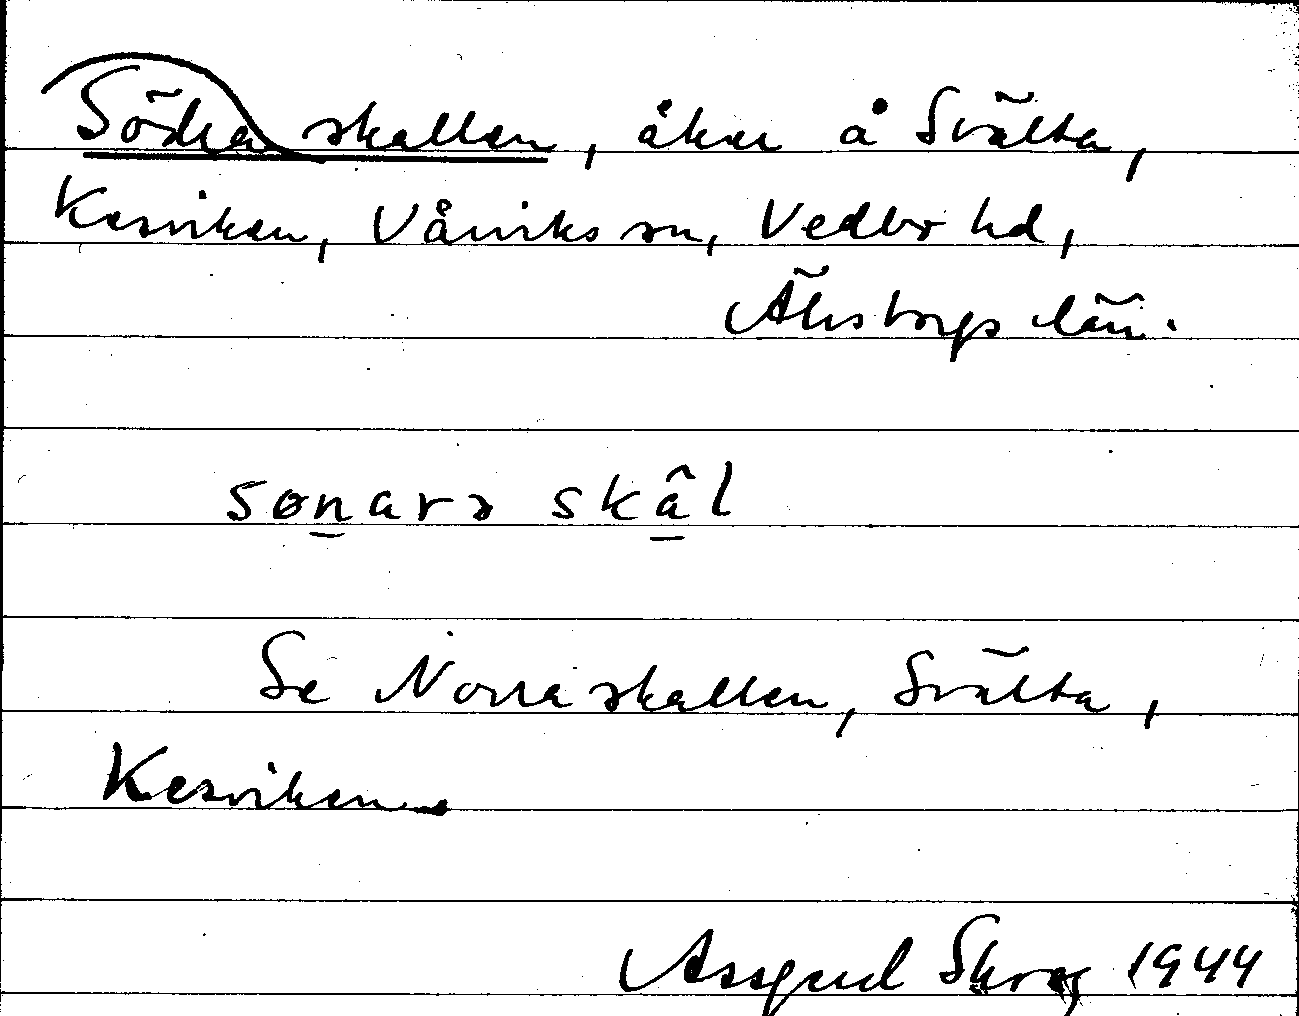 Södra skallen, åker å Svälta,
Kesviken, Vårviks sn, Vedbo hd,
Älvsborgs län.
sønarə skâl
Se Norra skallen, Svälta,
Kesviken.
Assgerd Skrog 1944